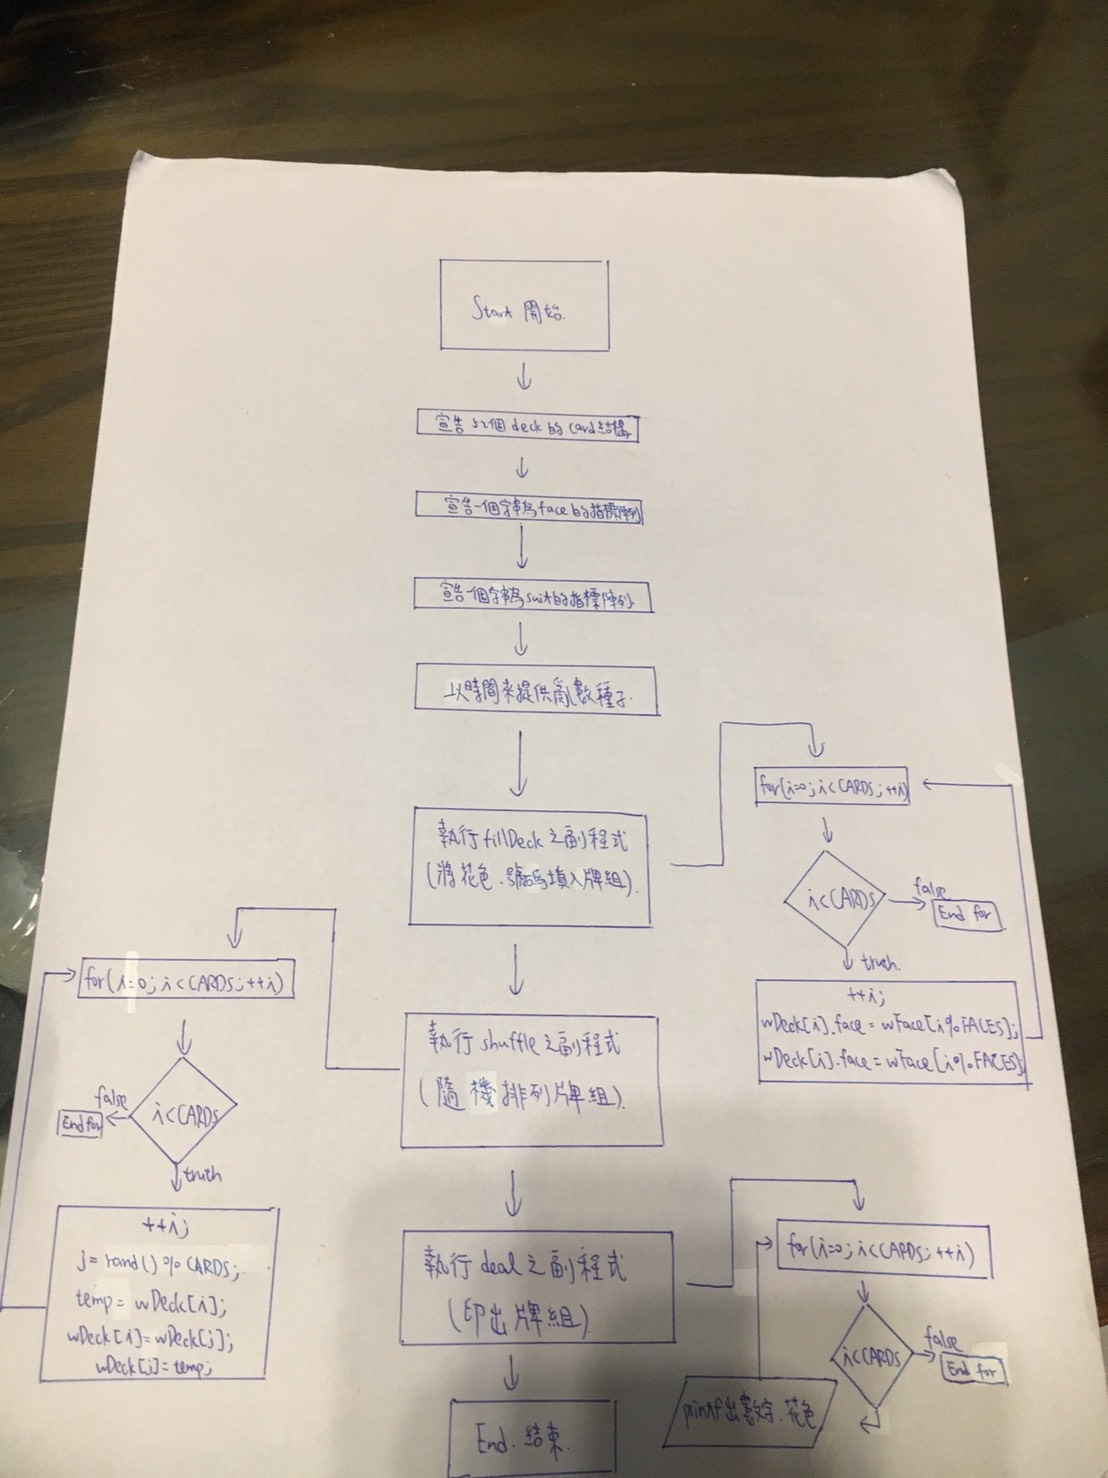 Start 開始.
宣告 52個 deck 的 card 結構
宣告一個字串為 face 的指標陣列
宣告一個字串為 suit 的指標陣列.
以時間來提供亂數種子.
執行 fillDeck 之副程式
(將花色.號碼填入牌組).
for(i=0; i<CARDS; ++i)
i<CARDS
false
End for
truth.
++i;
wDeck[i].face = wFace[i%FACES];
wDeck[i].face = wFace[i%FACES];
執行 shuffle 之副程式
(隨機排列牌組).
for(i=0; i<CARDS; ++i)
i<CARDS
false
End for
truth
++i;
j = rand() % CARDS;
temp = wDeck[i];
wDeck[i] = wDeck[j];
wDeck[j] = temp;
執行 deal 之副程式
(印出牌組).
for(i=0; i<CARDS; ++i)
i<CARDS
false
End for
printf出數字.花色
End. 結束.